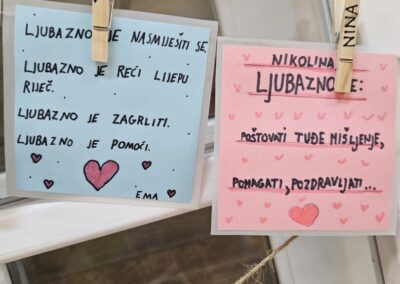 LJUBAZNO JE NASMIJEŠITI SE.
LJUBAZNO JE REĆI LIJEPU
RIJEČ.
LJUBAZNO JE ZAGRLITI.
LJUBAZNO JE POMOĆI.
EMA
NINA
NIKOLINA
LJUBAZNO JE:
POŠTOVATI TUĐE MIŠLJENJE,
POMAGATI, POZDRAVLJATI...